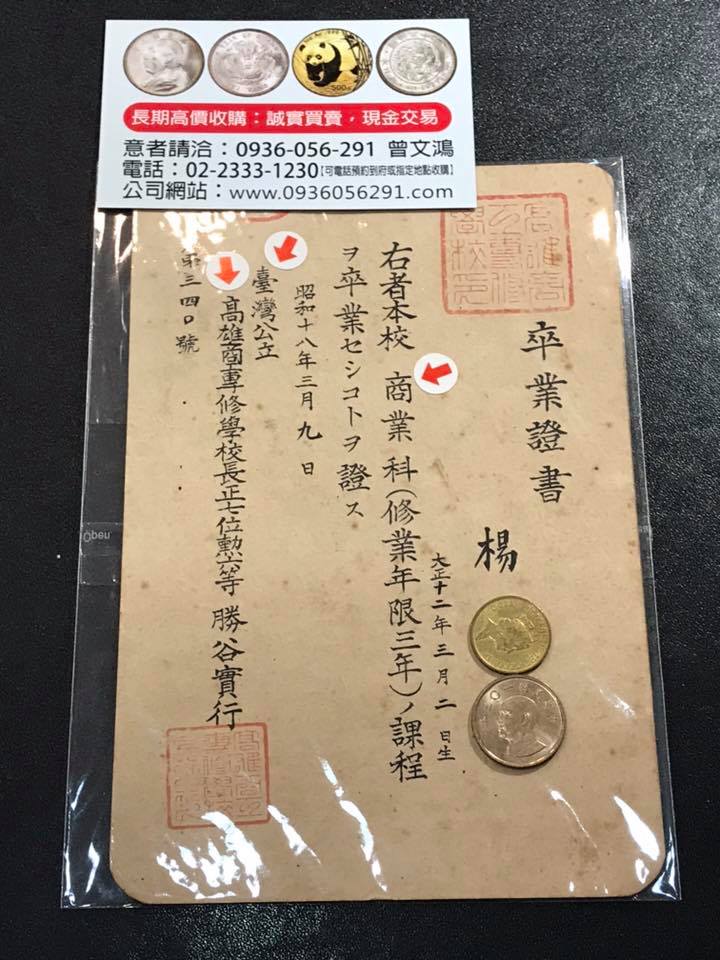 長期高價收購：誠實買賣，現金交易
意者請洽：0936-056-291 曾文鴻
電話：02-2333-1230【可電話預約到府或指定地點收購】
公司網站：www.0936056291.com
卒業證書
楊
大正十二年三月二日生
右者本校商業科(修業年限三年)ノ課程
ヲ卒業セシコトヲ證ス
昭和十八年三月九日
臺灣公立
高雄商專修學校長正七位勲六等 勝谷實行
第三四〇號
Open